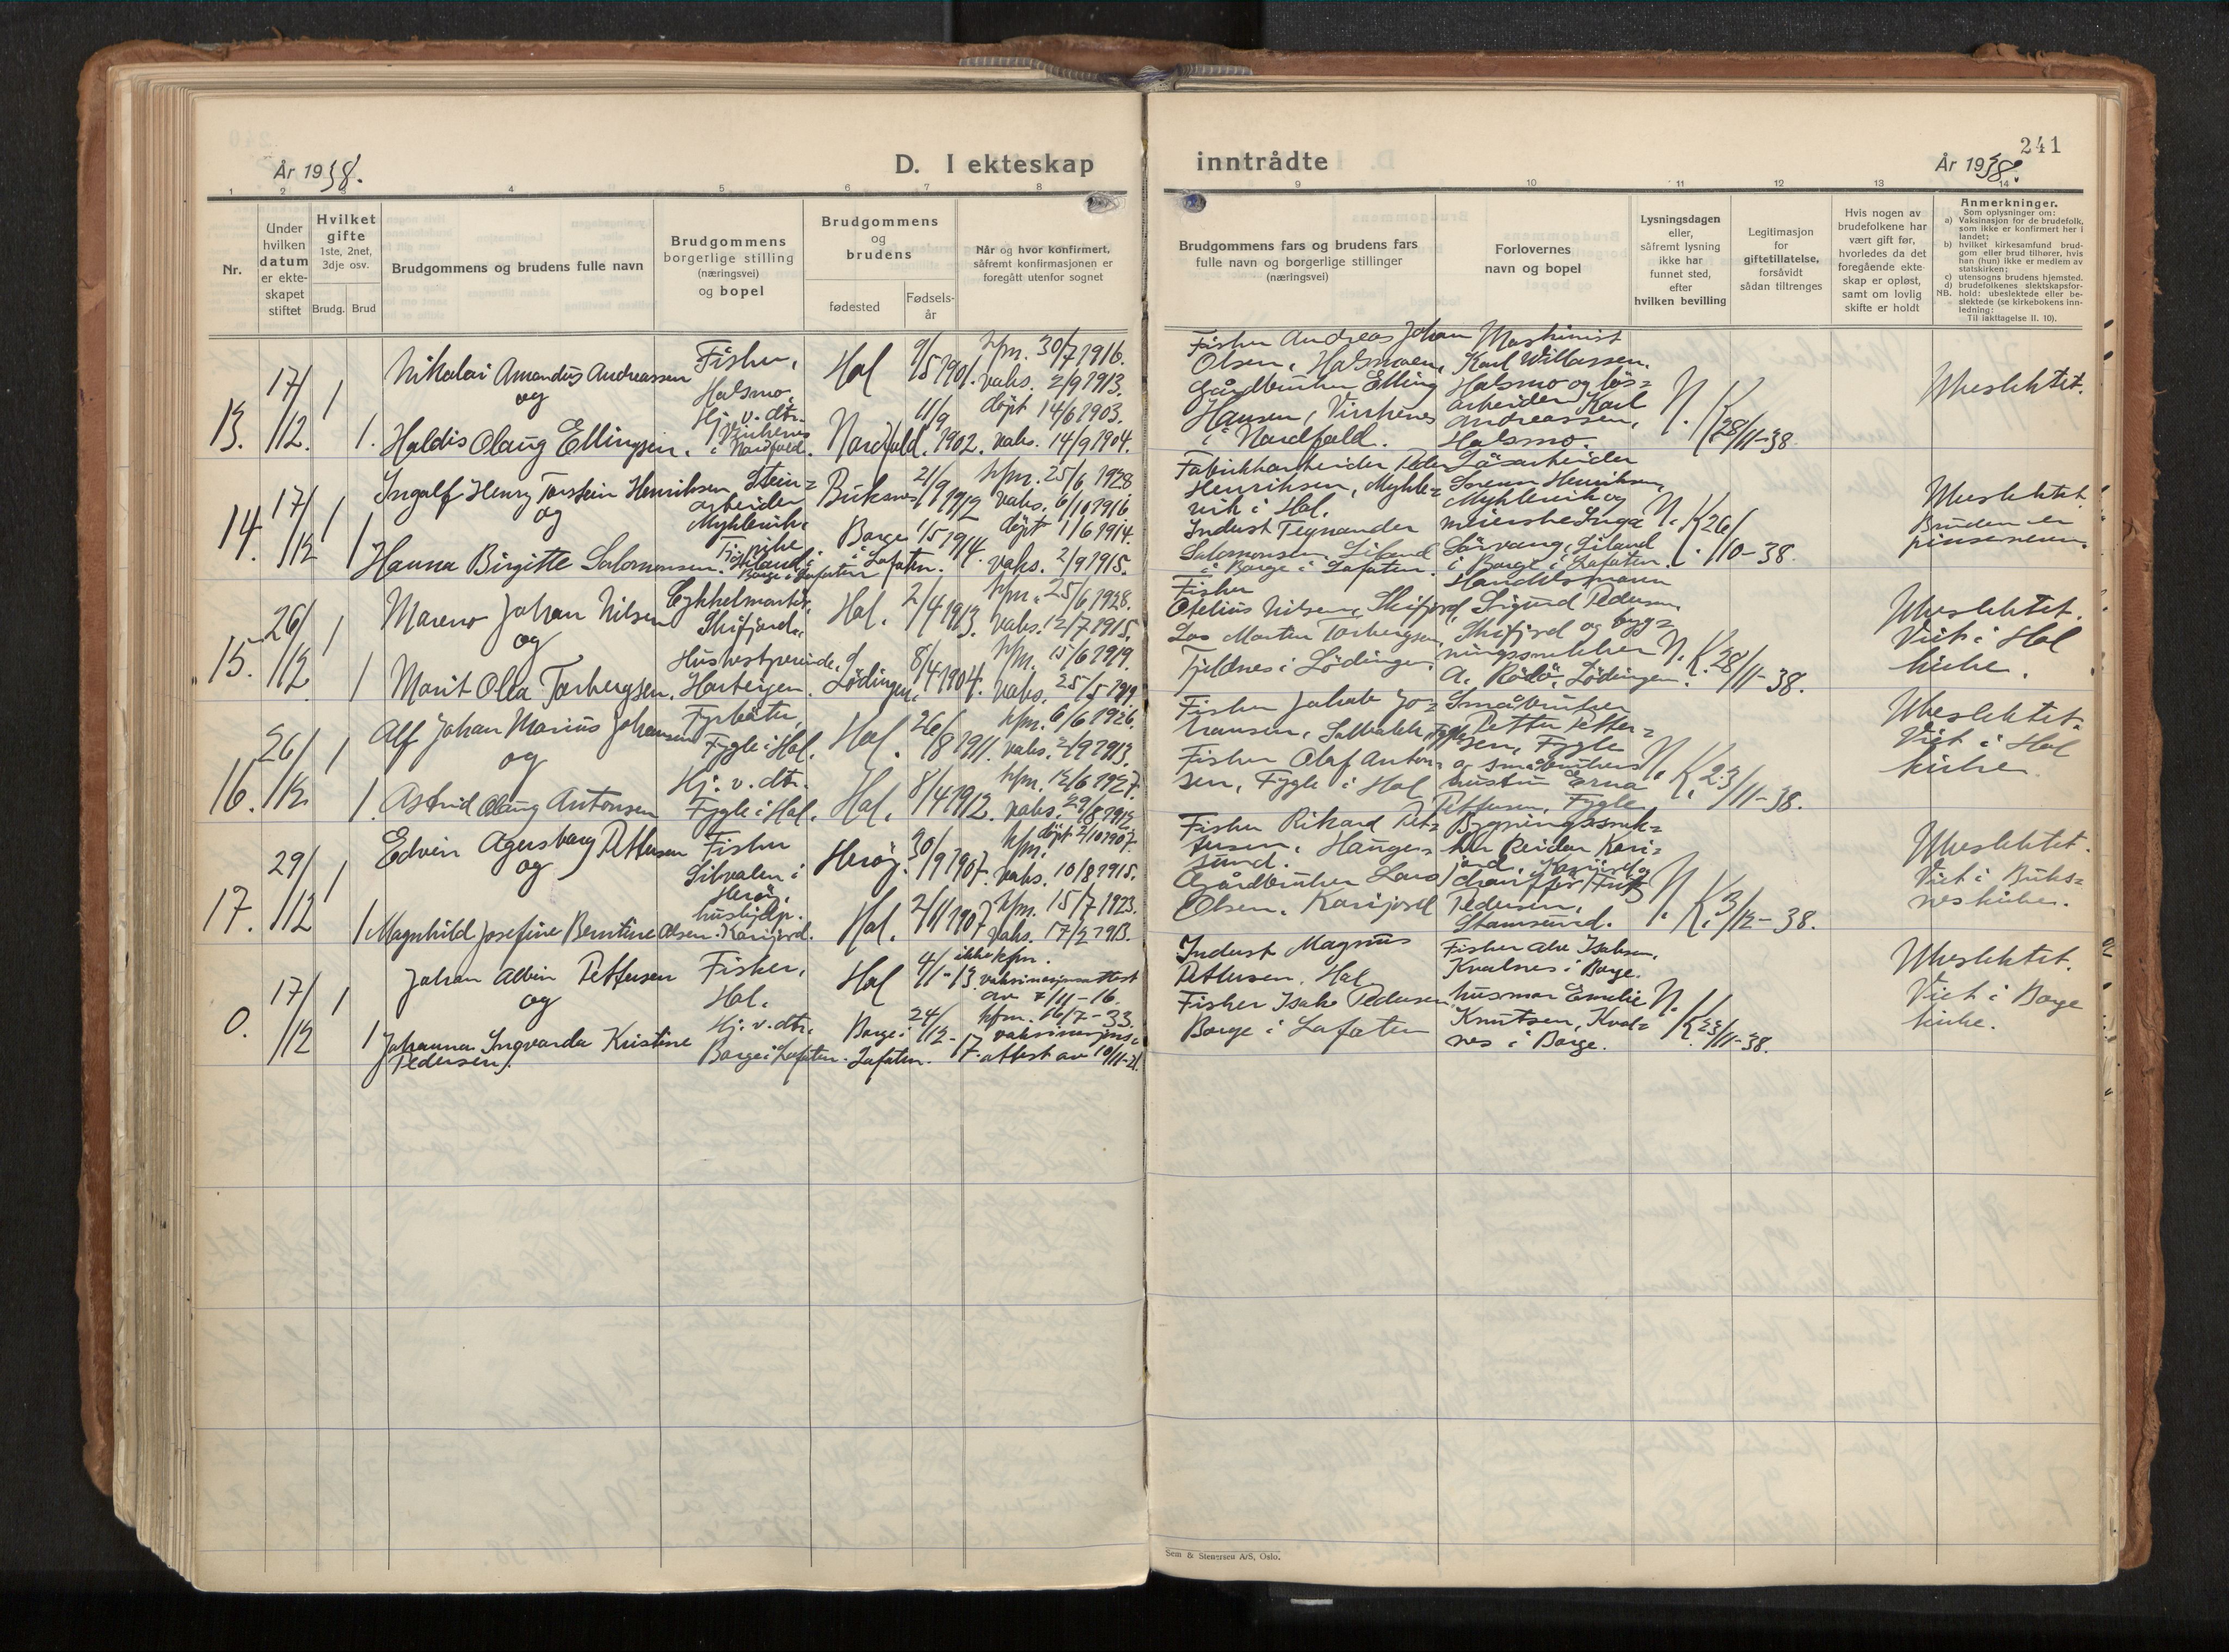 241
År 1938.
D. I ekteskap
inntrådte
År 1938.
1 2 3 4 5 6 7 8 9 10 11 12 13 14
Nr.
Under
hvilken
datum
er ekte-
skapet
stiftet
Hvilket
gifte
1ste, 2net,
3dje osv.
Brudg. Brud
Brudgommens og brudens fulle navn
Brudgommens
borgerlige stilling
(næringsvei)
og bopel
Brudgommens
og
brudens
fødested
Fødsels-
år
Når og hvor konfirmert,
såfremt konfirmasjonen er
foregått utenfor sognet
Brudgommens fars og brudens fars
fulle navn og borgerlige stillinger
(næringsvei)
Forlovernes
navn og bopel
Lysningsdagen
eller,
såfremt lysning
ikke har
funnet sted,
efter
hvilken bevilling
Legitimasjon
for
giftetillatelse,
forsåvidt
sådan tiltrenges
Hvis nogen av
brudefolkene har
vært gift før,
hvorledes da det
foregående ekte-
skap er opløst,
samt om lovlig
skifte er holdt
Anmerkninger.
Som oplysninger om:
a) Vaksinasjon for de brudefolk,
som ikke er konfirmert her i
landet;
b) hvilket kirkesamfund brud-
gom eller brud tilhører, hvis
han (hun) ikke er medlem av
statskirken;
c) utensogns brudens hjemsted.
d) brudefolkenes slektskapsfor-
NB. hold: ubeslektede eller be-
slektede (se kirkebokens inn-
ledning:
Til iakttagelse II. 10).
13.
17/12.
1
1.
Nikolai Amandus Andreassen
og
Haldis Olaug Ellingsen.
Fisker,
Halsmo.
Hj. v. dtr.
Vinkenes
i Nordfold.
Hol
Nordfold.
9/5 1901.
11/9 1902.
kfm. 30/7 1916.
vaks. 2/9 1913.
döpt 14/6 1903.
vaks. 14/9 1904.
Fisker Andreas Johan
Olsen, Halsmoen,
Gårdbruker Elling
Hansen, Vinkenes
i Nordfold.
Maskinist
Karl Willassen,
Halsmo og løs=
arbeider Karl
Andreassen,
Halsmo.
N. K. 28/11-38.
Ubeslektet.
14.
17/12
1
1
Ingolf Henry Torstein Henriksen
og
Hanna Birgitte Salomonsen.
Stein=
arbeider
Myklevik.
Borge i Lofoten
Buksnes
Borge
i Lofoten.
21/9 1912
1/5 1914.
kfm. 25/6 1928
vaks. 6/10 1916
döpt 1/6 1914.
vaks. 2/9 1915.
Fabrikkarbeider Peder
Henriksen, Mykle=
vik i Hol.
Indust Tegnander
Salomonsen, Liland
i Borge i Lofoten.
Løsarbeider
Sørenn Henriksen,
Myklevik og
meierske Inga
Sörvang, Liland
i Borge i Lofoten.
N. K. 26/10-38.
Ubeslektet
Bruden er
pinsevenn.
15.
26/12
1
1
Mareno Johan Nilsen
og
Marit Olea Torbergsen.
Cykkelmontör,
Skifjord.
Husbestyrerinde,
Harteigen.
Hol.
Lödingen
2/4 1913.
8/4 1904.
kfm. 25/6 1928.
vaks. 12/7 1915.
kfm. 15/6 1919.
vaks. 25/5 1919
Fisker
Otelius Nilsen, Skifjord,
Los Martin Torbergsen,
Fjeldnes i Lödingen
Handelsmann
Sigurd Pedersen,
Skifjord og byg=
ningssnekker
A. Rödö, Lödingen.
N. K. 28/11-38.
Ubeslektet.
Viet i Hol
kirke.
16.
26/12
1
1.
Alf Johan Marius Johansen
og
Astrid Olaug Antonsen
Fyrböter,
Fygle i Hol.
Hj. v. dtr.
Fygle i Hol.
Hol.
Hol.
26/8 1911.
8/4 1912.
kfm. 6/6 1926.
vaks. 2/9 1913.
kfm. 12/6 1927.
vaks. 29/8 1912
Fisker Jakob Jo=
hansen, Saltbakk, Fygle
Fisker Olaf Anton=
sen, Fygle i Hol
Småbruker
Petter Petter=
sen, Fygle
og småbrukers
hustru Erna
Pettersen, Fygle
N. K. 23/11-38.
Ubeslektet.
Viet i Hol
kirke.
17.
29/12
1
1
Edvin Agersborg Pettersen
og
Magnhild Josefine Berntine Olsen.
Fisker
Silvalen i
Herøy.
hushjelp.
Karijord.
Herøy.
Hol.
30/9 1907.
2/11 1907
kfm. döpt 2/10 1907.
vaks. 10/8 1915.
kfm. 15/7 1923.
vaks. 17/2 1913.
Fisker Rikard Pet=
tersen, Hauge=
sund.
Gårdbruker Lars
Olsen, Karijord
Bygningssnek=
ker Reidar Kari=
jord, Karijord og
chauffør Fritz
Pedersen,
Stamsund.
N. K. 3/12-38.
Ubeslektet.
Viet i Buks=
nes kirke.
0.
17/12
1
1
Johan Albin Pettersen
og
Johanna Ingvarda Kristine
Pedersen.
Fisker,
Hol.
Hj. v. dtr.
Borge i Lofoten.
Hol
Borge i
Lofoten.
4/1-13.
24/12-17.
ikke kfm.
vaksinasjonsattest
av 7/11-16.
kfm. 16/7-33.
vaksinasjons=
attest av 10/11-21.
Indust Magnus
Pettersen, Hol
Fisker Isak Pedersen
Borge i Lofoten
Fisker Alv Isaksen,
Kvalnes i Borge.
husmor Emelie
Knutsen, Kval=
nes i Borge.
N. K. 23/11-38.
Ubeslektet.
Viet i Borge
kirke.
Sem & Stenersen A/S, Oslo.